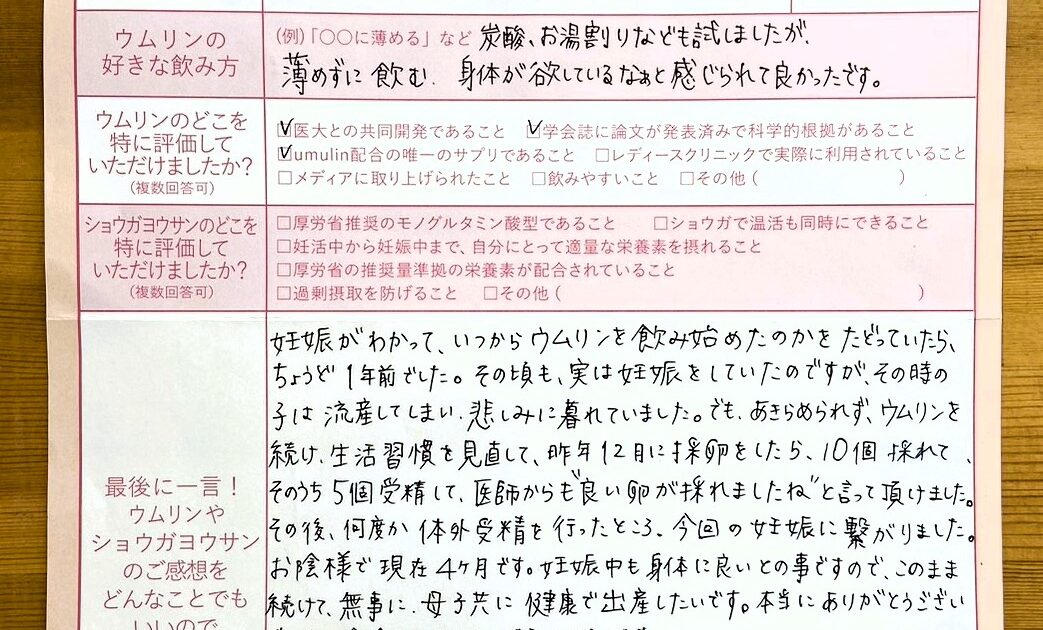 ウムリンの
好きな飲み方
(例)「○○に薄める」など 炭酸、お湯割りなども試しましたが、
薄めずに飲む。身体が欲しているなぁと感じられて良かったです。
ウムリンのどこを
特に評価して
いただけましたか?
(複数回答可)
☑医大との共同開発であること ☑学会誌に論文が発表済みで科学的根拠があること
☑umulin配合の唯一のサプリであること □レディースクリニックで実際に利用されていること
□メディアに取り上げられたこと □飲みやすいこと □その他 ( )
ショウガヨウサンのどこを
特に評価して
いただけましたか?
(複数回答可)
□厚労省推奨のモノグルタミン酸型であること □ショウガで温活も同時にできること
□妊活中から妊娠中まで、自分にとって適量な栄養素を摂れること
□厚労省の推奨量準拠の栄養素が配合されていること
□過剰摂取を防げること □その他 ( )
最後に一言!
ウムリンや
ショウガヨウサン
のご感想を
どんなことでも
いいので
妊娠がわかって、いつからウムリンを飲み始めたのかをたどっていたら、
ちょうど1年前でした。その頃も、実は妊娠をしていたのですが、その時の
子は流産してしまい、悲しみに暮れていました。でも、あきらめられず、ウムリンを
続け、生活習慣を見直して、昨年12月に採卵をしたら、10個採れて、
そのうち5個受精して、医師からも"良い卵が採れましたね"と言って頂けました。
その後、何度か体外受精を行ったところ、今回の妊娠に繋がりました。
お陰様で現在4ヶ月です。妊娠中も身体に良いとの事ですので、このまま
続けて、無事に、母子共に健康で出産したいです。本当にありがとうござい